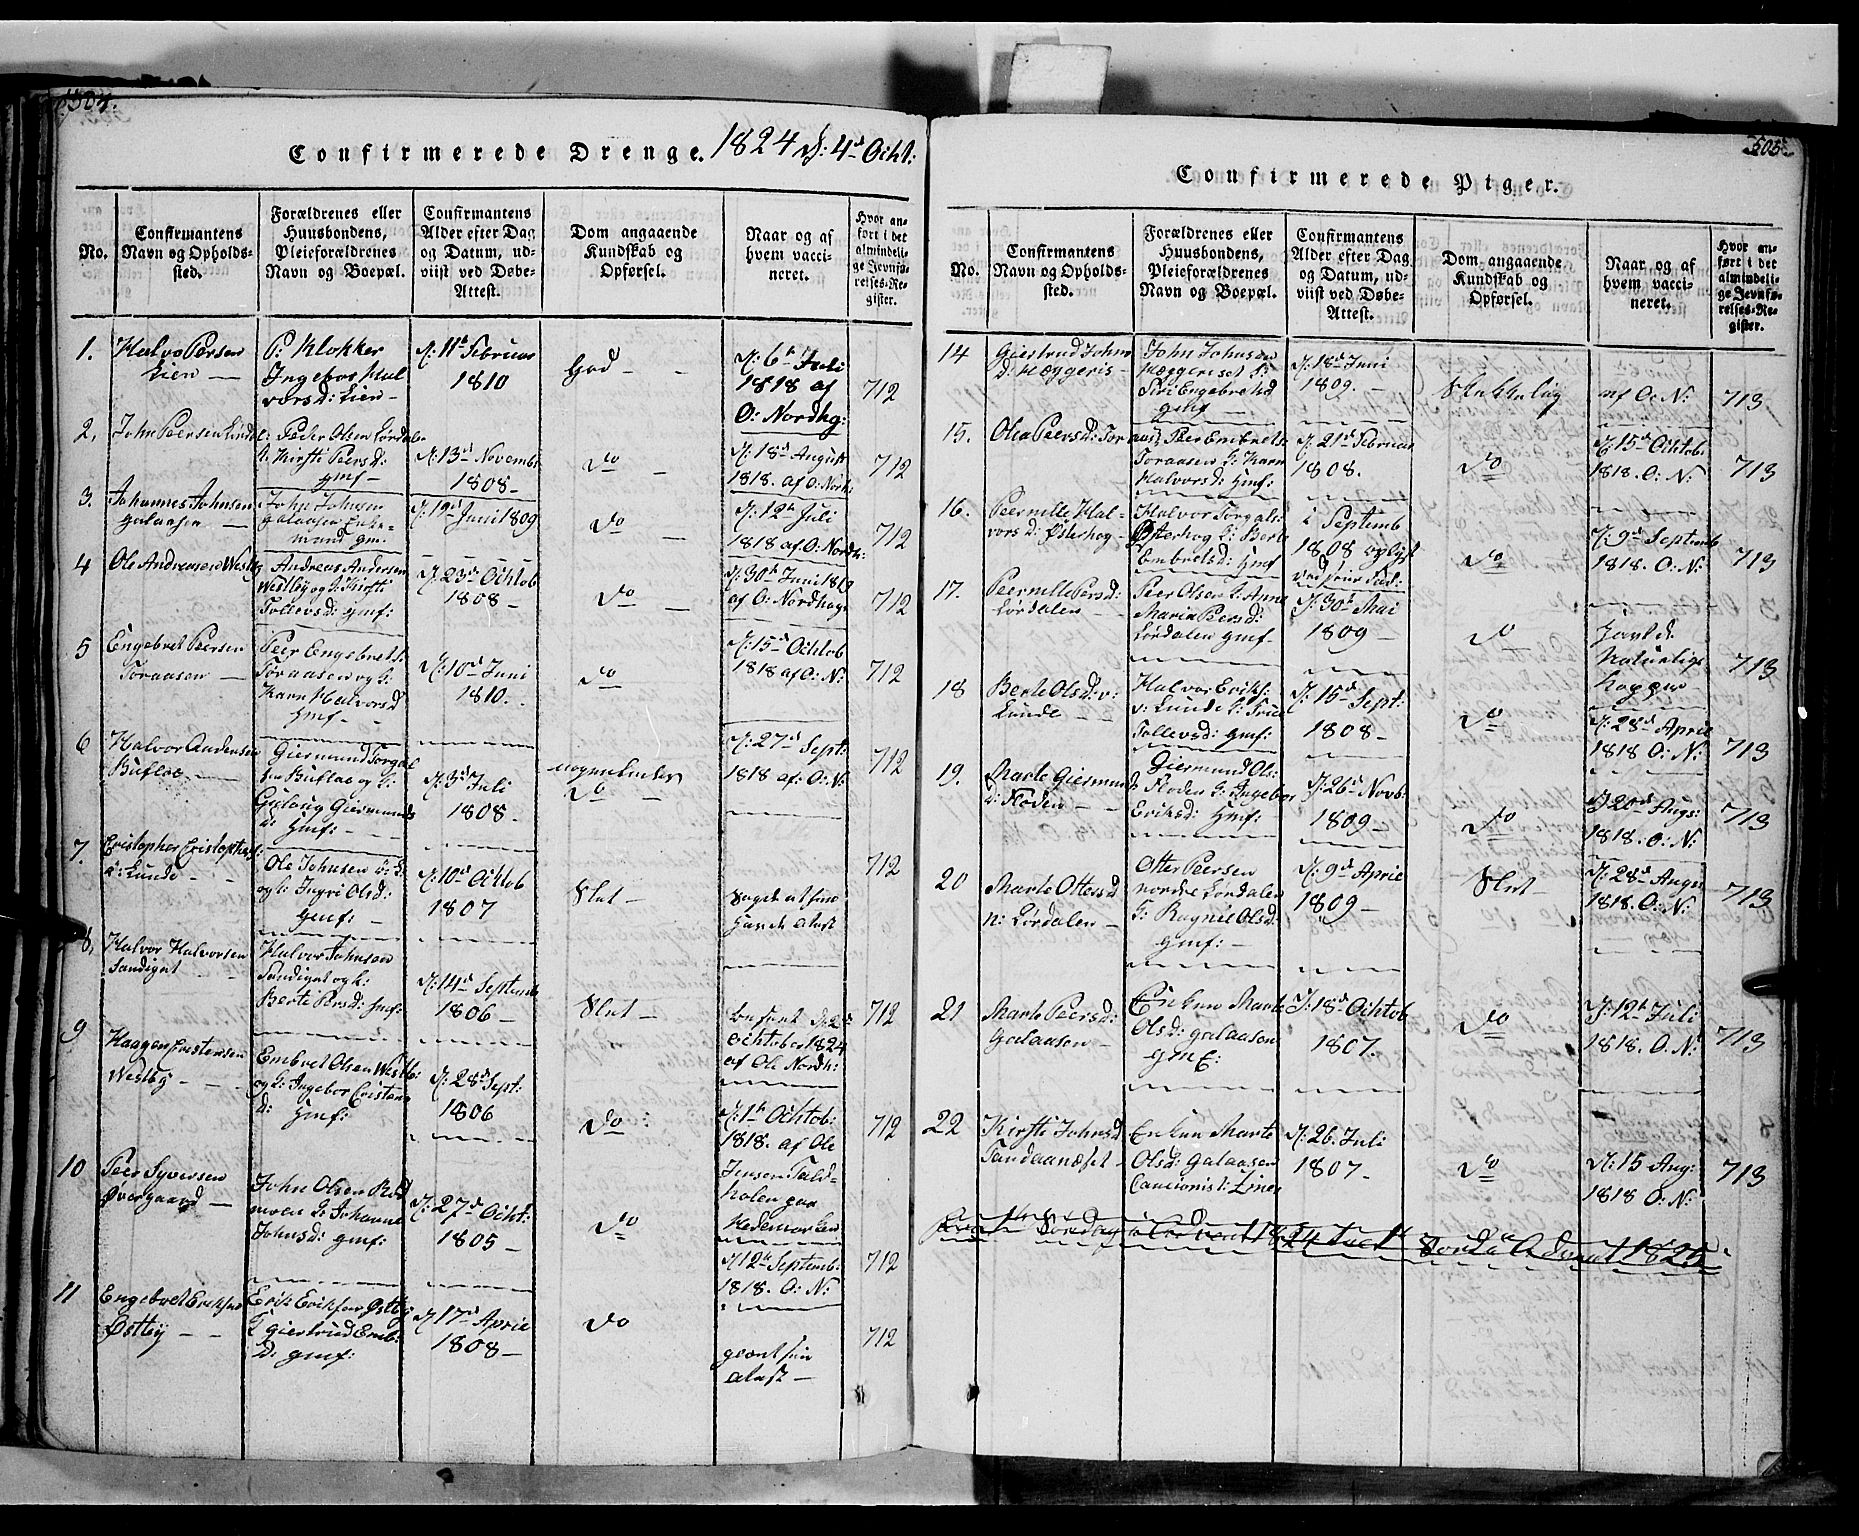 504.
Confirmerede Drenge. 1824 d: 4d Ocht:
No.
Confirmantens
Navn og Opholds-
sted.
Forældrenes eller
Huusbondens,
Pleieforældrenes
Navn og Boepæl.
Confirmantens
Alder efter Dag
og Datum, ud-
viist ved Døbe-
Attest.
Dom angaaende
Kundskab og
Opførsel.
Naar og af
hvem vacci-
neret.
Hvor an-
ført i det
almindeli-
ge Jevnfø-
relses-Re-
gister.
1.
Halvo Persen
Lien —
P: Klokker
Ingebor Hal
vorsd: Lien —
d: 11t Februar
1810
God — —
d: 6t Juli
1818 af
O: Nordhg:
712
2,
John Peersen
Peder Olsen Lørdale
Kirsti Persd:
gmf —
d: 13d Novemb
1808 —
do —
d: 18d August
1818. af O: Nordh:
712
3.
Johannes Johnsen
galaasen —
John Johnsen
galaasen Enke-
mand gm.
d: 19d Juni 1809
do —
d: 12t Juli
1818 af O: Nordh:
712
4
Ole Andreasen Westby
Andreas Andersen
Westby og L: Kirsti
Tollevsd: gmf:
d: 23d Ochtob
1808 —
do —
d: 30t Juni 1819
af O: Nordhage
712
5
Engebret Peersen
Toraasen —
Peer Engebrets:
Toraasen og L:
Karn Halvorsd
gmf —
d: 10d Juni
1810.
do
d: 15d Ochtob
1818 af O: N:
712
6
Halvor Andersen
Buflae —
Giermund Torgal
sen Buflae og L:
Gulaug Giermunds
d: gmf: —
d: 3d Juli
1808 —
do —
d: 27d Sept:
1818 af: O: N:
712
7.
Cristopher Cristophers:
ø: Lunde
Ole Johnsen ø: L:
og L: Ingri Olsd:
gmf: —
d: 10d Ochtob
1807
Slet —
712
8,
Halvor Halvorsen
Sandignt —
Halvor Johnsen
Sandignt og L:
Berte Persd: gmf:
d: 14d Septemb
1806 —
Slet —
ochtober 1824
af Ole Nordh:
712
9
Haagen Cristensen
Westby — —
Embret Olsen Westb:
og L: Ingebor Cristans
d: gmf:
d: 28d Sept:
1806
do:
d: 1t Ochtob:
1818. af Ole
Jensen Tald-
holen paa
Hedemarken
712
10
Peer Syversen
Øvergaard —
John Olsen Rød
moen L: Johanne
Johnsd: gmf:
d: 27d Ocht:
1805 —
do
d: 12t Septemb:
1818. O: N:
712
11
Engebret Eriksen
Østby — —
Erik Eriksen Østby
L giertrud Emb:
D: gmf:
d: 17d Aprie
1808 —
do
alast —
712
505
Confirmerede Piger.
No.
Confirmantens
Navn og Opholds-
sted.
Forældrenes eller
Huusbondens,
Pleieforældrenes
Navn og Boepæl.
Confirmantens
Alder efter Dag
og Datum, ud-
viist ved Døbe-
Attest.
Dom angaaende
Kundskab og
Opførsel.
Naar og af
hvem vacci-
neret.
Hvor an-
ført i det
almindeli-
ge Jevnfø-
relses-Re-
gister.
14
Giertrud Johns
d: Hæggeris —
John Johnsen
Hæggeriset L:
Siri Engebretsd
gmf —
d: 18d Juni
1809. —
af O: N:
713
15.
Olea Peersd: Tor
aas: Peer Embrets
Toraasen L: Karn
Halvorsd: gmf:
d: 21d Februar
1808.
do
d: 15d Ochtob:
1818. O: N:
713
16.
Peernille Hal-
vorsd: Østerhog —
Halvor Torgals:
Østerhog L: Berte
Embretsd: gmf
i Septemb
1808
do
d: 9d Septemb
1818. O: N:
713
17.
Peernille Persd:
Lørdalen —
Peer Olsen L: Anne
Maria Persd:
Lørdalen gmf.
d: 30t Mai
1809 —
do
havt de
naturlige
kopper —
713
18
Berte Olsd: v:
Lunde — —
Halvor Eriks:
v: Lunde L:
Tollevsd: gmf:
d: 15d Sept:
1808 —
do
d: 28d Aprie
1818 O: N:
713
19.
Marte Giermund
d: Floden — —
Giermund Ols:
Floden L: Ingebor
Eriksd: gmf:
d: 26d Novb:
1809 —
do
d: 20d Augs:
1818. O: N:
713
20
Marte Ottersd
n: Lørdalen —
Otter Peersen
nordre Lørdalen
L: Ragnil Olsd:
gmf: —
d: 9d Aprie
1809 —
Slet —
d: 28d Augs
1818. O: N:
713
21
Marte Peersd:
Galaasen —
Enken Marte
Olsd: galaasen
gmE:
d: 18d Ochtob
1807.
do
d: 12t Juli
1818. O: N:
713
22
Kirsti Johnsd
Sandaanæset —
Enken Marte
Olsd: galaasen
d: 26. Juli
1807 —
do
d: 15 Aug:
1818 O: N:
713
fra 1t Søndag i Advent 1824 til 1t Sønda Advent 1825